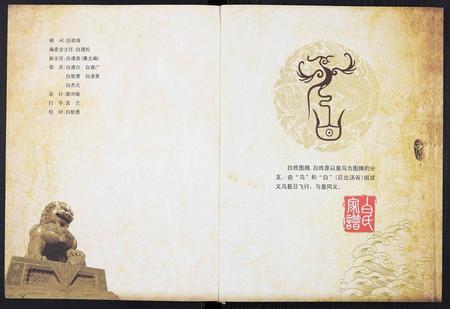 顾 问:白治海
编委会主任:白遵松
副主任:白遵良(兼主编)
委 员:白遵兴 白遵广
白智勇 白清勇
白杰元
设 计:廖河敏
打 字:袁 兰
校 对:白智勇
白姓图腾,白姓是以皇鸟为图腾的分
支,由“鸟”和“白”(日出汤谷)组成
义鸟载日飞行,与皇同义。
白氏
家谱